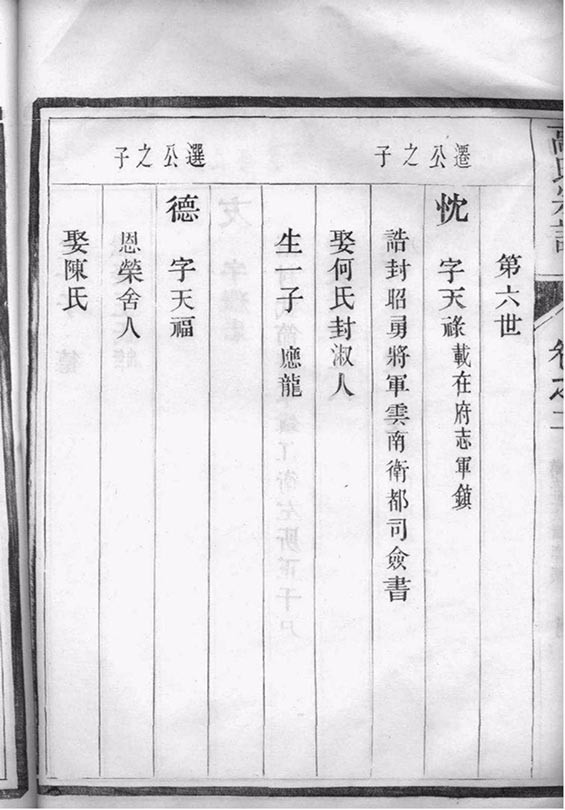 高氏宗譜
卷之二
第六世
遷公之子
忱 字天祿載在府志軍鎮
誥封昭勇將軍雲南衛都司僉書
娶何氏封淑人
生一子應龍
選公之子
德 字天福
恩榮舍人
娶陳氏